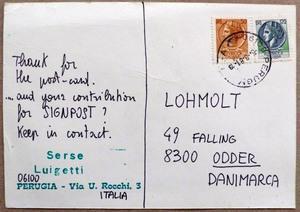 Thank for
the post-card.
... and your contribution
for SIGNPOST?
Keep in contact.
Serse
Luigetti
06100
PERUGIA - Via U. Rocchi, 3
ITALIA
PERUGIA
LOHMOLT
49 FALLING
8300 ODDER
DANIMARCA